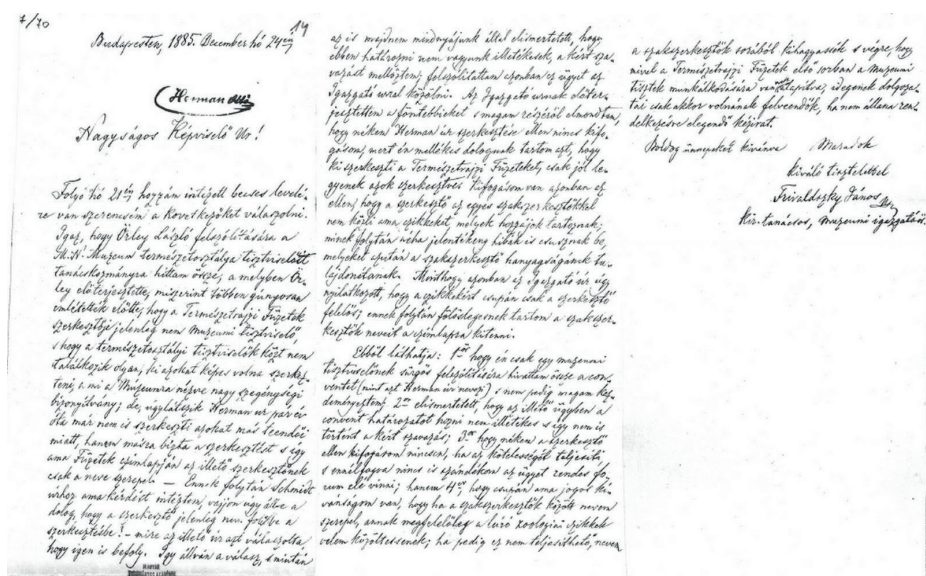 7/70
19
Budapesten, 1885. December hó 24én
Herman
Nagyságos Képviselő Ur!
Folyó hó 21én hozzám intézett becses levelé-
re van szerencsém a következőket válaszolni.
Igaz, hogy Örley László felszólítására a
M. N. Muzeum természetosztálya tisztviselőit
tanácskozmányra hittam össze, a melyben Ör-
ley előterjesztette, miszerint többen gúnyosan
emlitették előtte, hogy a Természetrajzi Füzetek
szerkesztője jelenleg nem Muzeumi tisztviselő,
s hogy a természetosztályi tisztviselők közt nem
találkozik olyan, ki azokat képes volna szerkesz-
teni, a mi a Múzeumra nézve nagy szegénységi
bizonyítvány; de, úgy látszik Herman ur pár év
óta már nem is szerkeszti azokat más teendői
miatt, hanem másra bízta a szerkesztést s így
ama Füzetek czimlapján az illető szerkesztőnek
csak a neve szerepel. — Ennek folytán Schmidt
úrhoz ama kérdést intéztem, vajjon úgy áll-e a
dolog, hogy a szerkesztő jelenleg nem foly be a
szerkesztésbe! – mire az illető úr azt válaszolta
hogy igen is befoly. Igy állván a válasz, s miután
az is majdnem mindnyájunk által elismertetett, hogy
ebben határozni nem vagyunk illetékesek, a kért sza-
vazást mellőztem; felszólítattam azonban ez ügyet az
Igazgató urral közölni. Az Igazgató urnak előter-
jesztettem a föntebbieket s magam részéről elmondtam,
hogy nékem Herman úr szerkesztése ellen nincs kifo-
gásom, mert én mellékes dolognak tartom azt, hogy
ki szerkeszti a Természetrajzi Füzeteket, csak jól le-
gyenek azok szerkesztve; kifogásom van azonban az
ellen, hogy a szerkesztő az egyes szakszerkesztőkkel
nem közli ama czikkeket, melyek hozzájok tartoznak;
minek folytán néha jelentékeny hibák is csusznak be,
melyeket azután a szakszerkesztő hanyagságának tu-
lajdonítanak. Minthogy azonban az Igazgató úr úgy
nyilatkozott, hogy a czikkekért csupán csak a szerkesztő
felelős; ennek folytán fölöslegesnek tartom a szakszer-
kesztők neveit a czimlapra kitenni.
Ebből láthatja: 1ör hogy én csak egy muzeumi
tisztviselőnek sürgős felszólítására hivattam össze a con-
ventet (mint azt Herman úr nevezi) s nem pedig magam kez-
deményeztem; 2or elismertetett, hogy az illető ügyben a
convent határozatot hozni nem illetékes s így nem is
történt a kért szavazás; 3or hogy nékem a szerkesztő
ellen kifogásom nincsen, ha az kötelességét teljesíti
s ennélfogva nincs is szándékom az ügyet rendes fo-
rum elé vinni; hanem 4er, hogy csupán ama jogos ki-
vánságom van, hogy ha a szakszerkesztők között nevem
szerepel, annak megfelelőleg a leíró zoologiai czikkek
velem közöltessenek; ha pedig ez nem teljesithető, nevem
a szakszerkesztők sorából kihagyassék s végre, hogy
mivel a Természetrajzi Füzetek első sorban a Muzeumi
tisztek munkálkodására van alapitva, idegenek dolgoza-
tai csak akkor volnának felveendők, ha nem állana ren-
delkezésre elegendő kézirat.
Boldog ünnepeket kivánva Maradok
kiváló tisztelettel
Frivaldszky János
kir. tanácsos, muzeumi igazgatóőr
MAGYAR